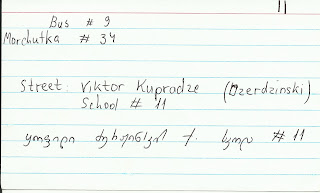 11
Bus # 9
Morchutka # 34
Street: Viktor Kupradze (Dzerdzinski)
School # 11
ყოფილი ძერჟინსკის ქ. სკოლა # 11